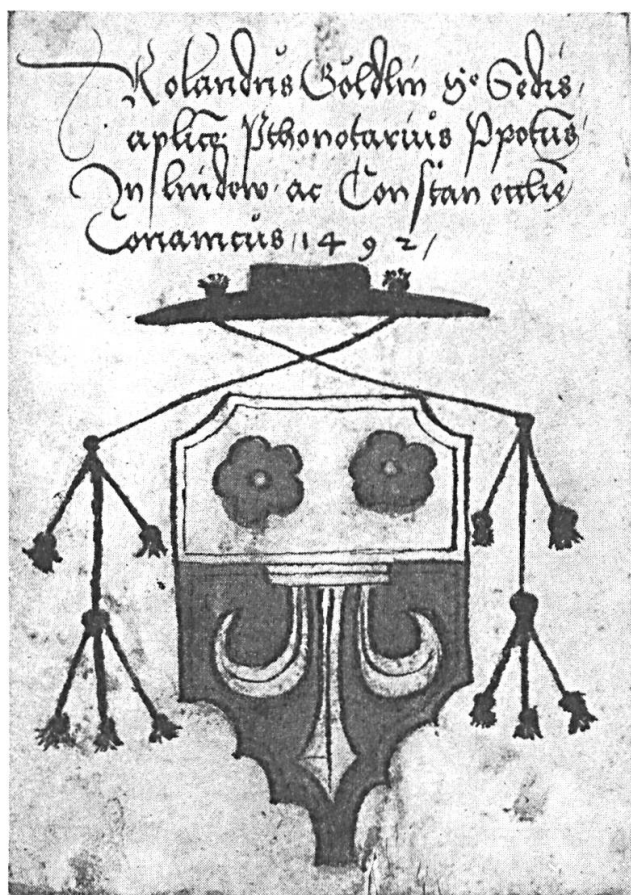 Rolandus Göldlin s. Sedis,
aplice Pthonotarius Ppotus
In lindow ac Constan ecclie
Conamcus, 1492,